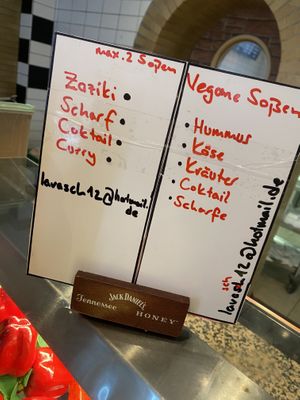 max. 2 Soßen
Zaziki •
Scharf •
Coktail •
Curry •
lavasch12@hotmail.
de
Vegane Soßen
• Hummus
• Käse
• Kräuter
• Coktail
• Scharfe
lavasch12@hotmail.de
JACK DANIEL'S
Tennessee HONEY